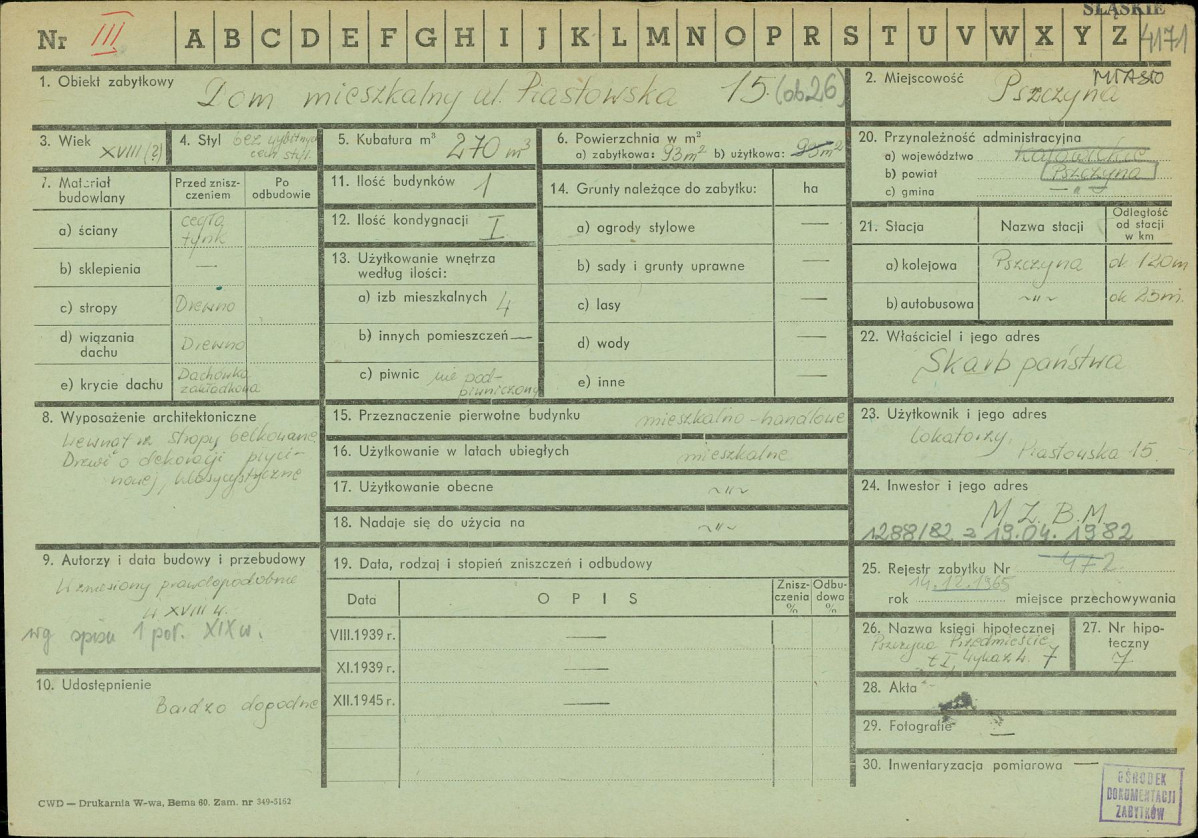 ŚLĄSKIE
Nr III A B C D E F G H I J K L M N O P R S T U V W X Y Z 4171
1. Obiekt zabytkowy Dom mieszkalny ul. Piastowska 15. (ob 26)
2. Miejscowość MIASTO
Pszczyna
3. Wiek XVIII (?)
4. Styl bez wybitnych
cech styl.
5. Kubatura m³ 270 m³
6. Powierzchnia w m²
a) zabytkowa: 93m² b) użytkowa: 93m²
20. Przynależność administracyjna
a) województwo katowickie
b) powiat Pszczyna
c) gmina — " —
7. Materiał
budowlany
Przed znisz-
czeniem
Po
odbudowie
a) ściany cegła
tynk
b) sklepienia —
c) stropy Drewno
d) wiązania
dachu Drewno
e) krycie dachu Dachówka
zakładkowa
11. Ilość budynków 1
12. Ilość kondygnacji I
13. Użytkowanie wnętrza
według ilości:
a) izb mieszkalnych 4
b) innych pomieszczeń —
c) piwnic nie pod-
piwniczony
14. Grunty należące do zabytku: ha
a) ogrody stylowe —
b) sady i grunty uprawne —
c) lasy —
d) wody —
e) inne —
21. Stacja Nazwa stacji Odległość
od stacji
w km
a) kolejowa Pszczyna ok 120m
b) autobusowa ~"~ ok 25m.
22. Właściciel i jego adres
Skarb państwa
8. Wyposażenie architektoniczne
Wewnątrz stropy belkowane
Drzwi o dekoracji płyci-
nowej, klasycystyczne
15. Przeznaczenie pierwotne budynku mieszkalno-handlowe
16. Użytkowanie w latach ubiegłych mieszkalne
17. Użytkowanie obecne ~"~
18. Nadaje się do użycia na ~"~
23. Użytkownik i jego adres
Lokatorzy,
Piastowska 15.
24. Inwestor i jego adres
M.Z.B.M
1288/82 z 19.04.1982
9. Autorzy i data budowy i przebudowy
Wzniesiony prawdopodobnie
w XVIII w.
wg spisu 1 poł. XIX w.
10. Udostępnienie
Bardzo dogodne
19. Data, rodzaj i stopień zniszczeń i odbudowy
Data OPIS Znisz-
czenia
%
Odbu-
dowa
%
VIII.1939 r. —
XI.1939 r. —
XII.1945 r. —
25. Rejestr zabytku Nr 472
14.12.1965
rok miejsce przechowywania
26. Nazwa księgi hipotecznej
Pszczyna Przedmieście
t I, wykaz 4. 7
27. Nr hipo-
teczny
7
28. Akta -
29. Fotografie —
30. Inwentaryzacja pomiarowa —
OŚRODEK
DOKUMENTACJI
ZABYTKÓW
CWD — Drukarnia W-wa, Bema 60. Zam. nr 349-5162